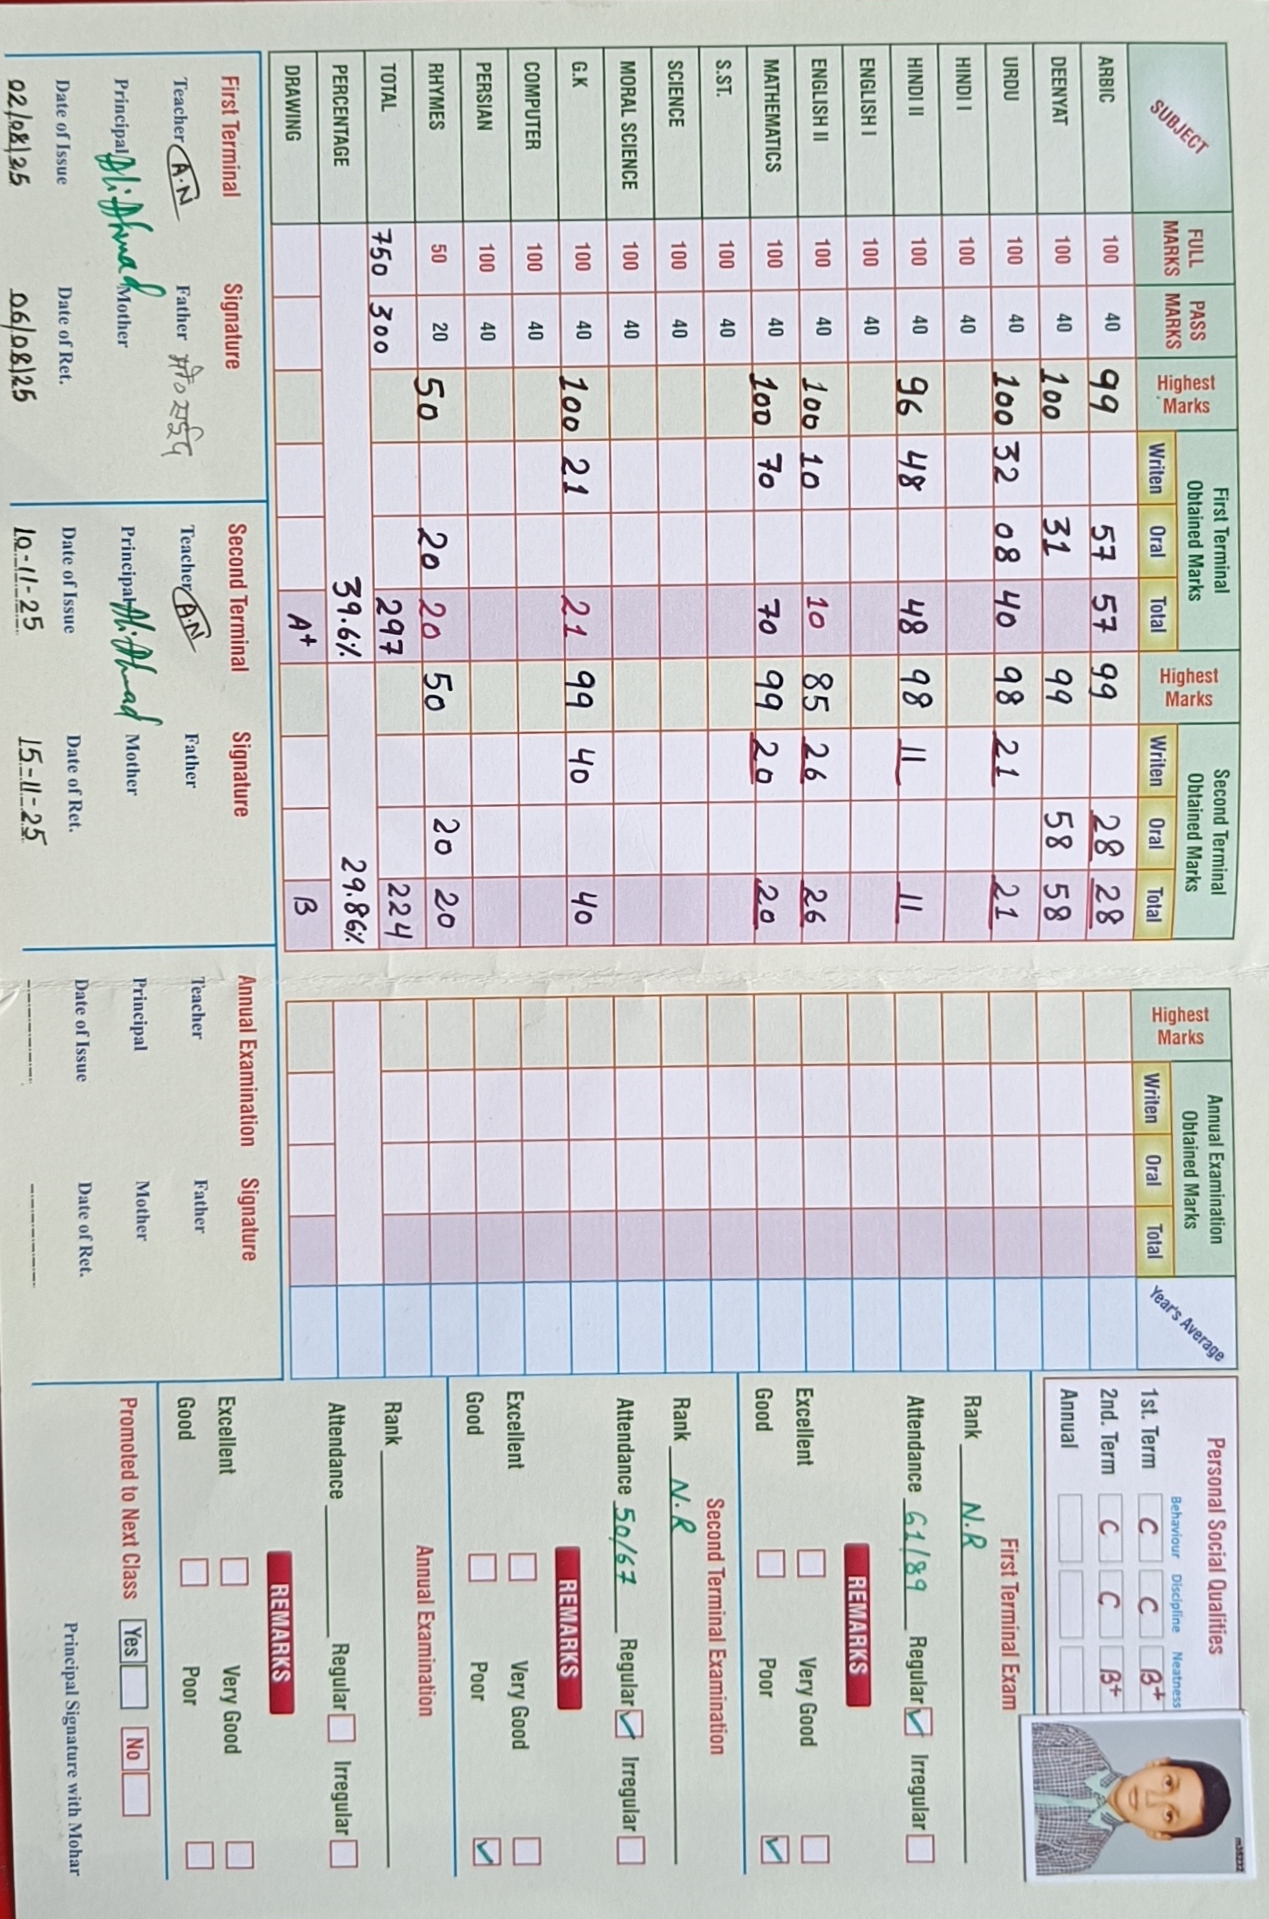 SUBJECT FULL MARKS PASS MARKS Highest Marks First Terminal Obtained Marks Writen Oral Total Highest Marks Second Terminal Obtained Marks Writen Oral Total Highest Marks Annual Examination Obtained Marks Writen Oral Total Year's Average
ARBIC 100 40 99 57 57 99 28 28
DEENYAT 100 40 100 31 99 58 58
URDU 100 40 100 32 08 40 98 21 21
HINDI I 100 40
HINDI II 100 40 96 48 48 98 11 11
ENGLISH I 100 40
ENGLISH II 100 40 100 10 10 85 26 26
MATHEMATICS 100 40 100 70 70 99 20 20
S.ST. 100 40
SCIENCE 100 40
MORAL SCIENCE 100 40
G.K 100 40 100 21 21 99 40 40
COMPUTER 100 40
PERSIAN 100 40
RHYMES 50 20 50 20 20 50 20 20
TOTAL 750 300 297 224
PERCENTAGE 39.6% 29.86%
DRAWING A+ B
First Terminal Signature
Teacher A.N Father मो० सईद
Principal Ali Ahmad Mother
Date of Issue Date of Ret.
02/08/25 06/08/25
Second Terminal Signature
Teacher A.N Father
Principal Ali Ahmad Mother
Date of Issue Date of Ret.
10-11-25 15-11-25
Annual Examination Signature
Teacher Father
Principal Mother
Date of Issue Date of Ret.
Personal Social Qualities
Behaviour Discipline Neatness
1st. Term C C B+
2nd. Term C C B+
Annual
m35232
First Terminal Exam
Rank N.R
Attendance 61/89 Regular Irregular
REMARKS
Excellent Very Good
Good Poor
Second Terminal Examination
Rank N.R
Attendance 50/67 Regular Irregular
REMARKS
Excellent Very Good
Good Poor
Annual Examination
Rank
Attendance Regular Irregular
REMARKS
Excellent Very Good
Good Poor
Promoted to Next Class Yes No
Principal Signature with Mohar